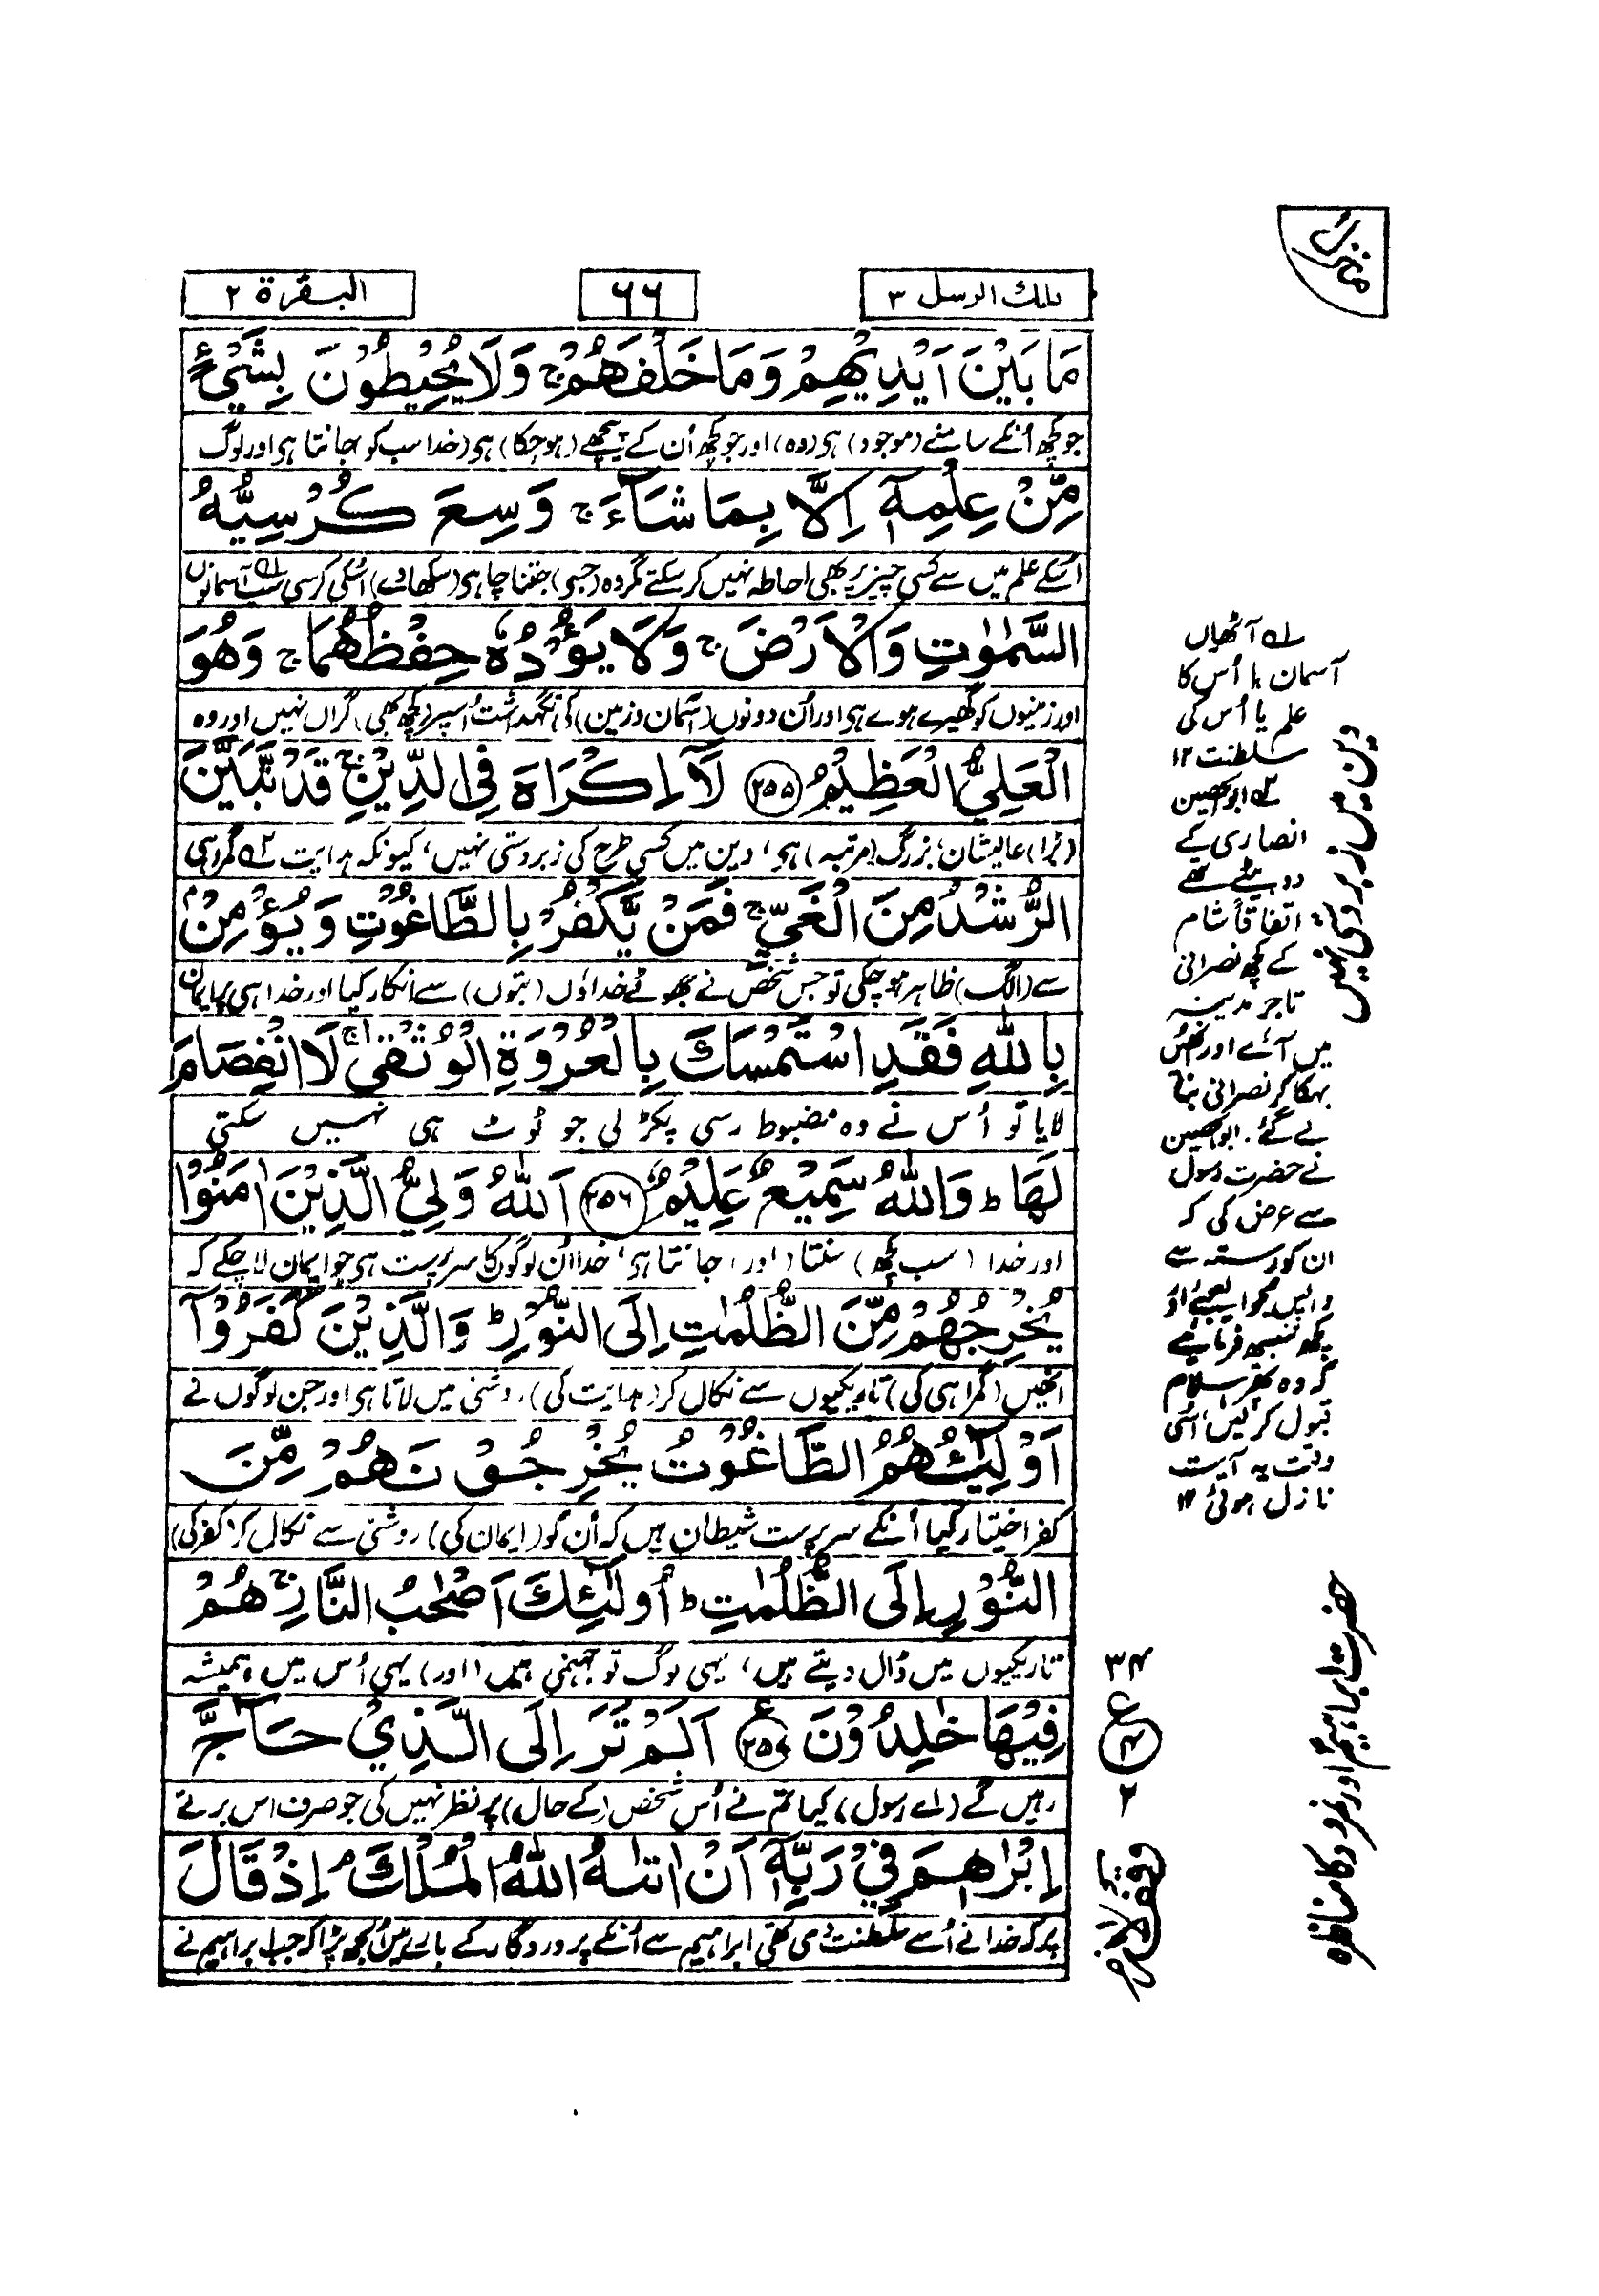 تلك الرسل ۳
۶۶
البقرة ۲
مَا بَيْنَ اَيْدِيْهِمْ وَمَا خَلْفَهُمْ ۚ وَلَا يُحِيْطُوْنَ بِشَيْءٍ
جو کچھ اُنکے سامنے (موجود) ہی (وہ) اور جو کچھ اُن کے پیچھے (ہو چکا) ہی (خدا سب کو) جانتا ہی اور لوگ
مِّنْ عِلْمِهٖٓ اِلَّا بِمَا شَآءَ ۚ وَسِعَ كُرْسِيُّهُ
اُسکے علم میں سے کسی چیز پر بھی احاطہ نہیں کر سکتے مگر وہ (جسے) جتنا چاہی (سکھا دے) اُسکی کرسی سب آسمانوں
السَّمٰوٰتِ وَالْاَرْضَ ۚ وَلَا يَـُٔوْدُهٗ حِفْظُهُمَا ۚ وَهُوَ
اور زمینوں کو گھیرے ہوے ہی اور اُن دونوں (آسمان و زمین) کی نگہداشت اُسپر کچھ بھی گراں نہیں اور وہ
الْعَلِيُّ الْعَظِيْمُ ﴿۲۵۵﴾ لَآ اِكْرَاهَ فِي الدِّيْنِ ۚ قَدْ تَّبَيَّنَ
(بڑا) عالیشان بزرگ (مرتبہ) ہی، دین میں کسی طرح کی زبردستی نہیں، کیونکہ ہدایت ۲ گمراہی
الرُّشْدُ مِنَ الْغَيِّ ۚ فَمَنْ يَّكْفُرْ بِالطَّاغُوْتِ وَيُؤْمِنْۢ
سے (الگ) ظاہر ہو چکی تو جس شخص نے جھوٹے خداؤں (بتوں) سے انکار کیا اور خدا ہی پر ایمان
بِاللّٰهِ فَقَدِ اسْتَمْسَكَ بِالْعُرْوَةِ الْوُثْقٰى ۚ لَا انْفِصَامَ
لایا تو اُس نے وہ مضبوط رسی پکڑ لی جو ٹوٹ ہی نہیں سکتی
لَهَا ؕ وَاللّٰهُ سَمِيْعٌ عَلِيْمٌ ﴿۲۵۶﴾ اَللّٰهُ وَلِيُّ الَّذِيْنَ اٰمَنُوْا
اور خدا (سب کچھ) سنتا (اور) جانتا ہی، خدا اُن لوگوں کا سرپرست ہی جو ایمان لا چکے کہ
يُخْرِجُهُمْ مِّنَ الظُّلُمٰتِ اِلَى النُّوْرِ ؕ وَالَّذِيْنَ كَفَرُوْٓا
انھیں (گمراہی کی) تاریکیوں سے نکال کر (ہدایت کی) روشنی میں لاتا ہی اور جن لوگوں نے
اَوْلِيٰٓـُٔهُمُ الطَّاغُوْتُ يُخْرِجُوْنَهُمْ مِّنَ
کفر اختیار کیا اُنکے سرپرست شیطان ہیں کہ اُن کو (ایمان کی) روشنی سے نکال کر (کفر کی)
النُّوْرِ اِلَى الظُّلُمٰتِ ؕ اُولٰٓئِكَ اَصْحٰبُ النَّارِ ۚ هُمْ
تاریکیوں میں ڈال دیتے ہیں، یہی لوگ تو جہنمی ہیں (اور) یہی اُس میں ہمیشہ
فِيْهَا خٰلِدُوْنَ ﴿۲۵۷﴾ اَلَمْ تَرَ اِلَى الَّذِيْ حَآجَّ
رہیں گے (اے رسول) کیا تم نے اُس شخص (کے حال) پر نظر نہیں کی جو صرف اس برتے
اِبْرٰهٖمَ فِيْ رَبِّهٖٓ اَنْ اٰتٰىهُ اللّٰهُ الْمُلْكَ ۘ اِذْ قَالَ
پر کہ خدا نے اُسے سلطنت دی تھی ابراہیم سے اُنکے پروردگار کے بارے میں اُلجھ پڑا کہ جب ابراہیم نے
۱ آٹھواں
آسمان یا اُس کا
علم یا اُس کی
سلطنت ۱۲
۲ ابو الحصین
انصاری کے
دو بیٹے تھے
اتفاقاً شام
کے کچھ نصرانی
تاجر مدینہ
میں آئے اور انھیں
بہکا کر نصرانی بنا
لے گئے. ابو الحصین
نے حضرت رسول
سے عرض کی کہ
ان کو رستہ سے
واپس بلوا لیجئے اور
کچھ تنبیہ فرمائیے
کہ وہ پھر اسلام
قبول کر لیں، اُسی
وقت یہ آیت
نازل ہوئی ۱۲
دین میں زبردستی نہیں
حضرت ابراہیم اور نمرود کا مناظرہ
۳۴
ع
۲
وقف لازم